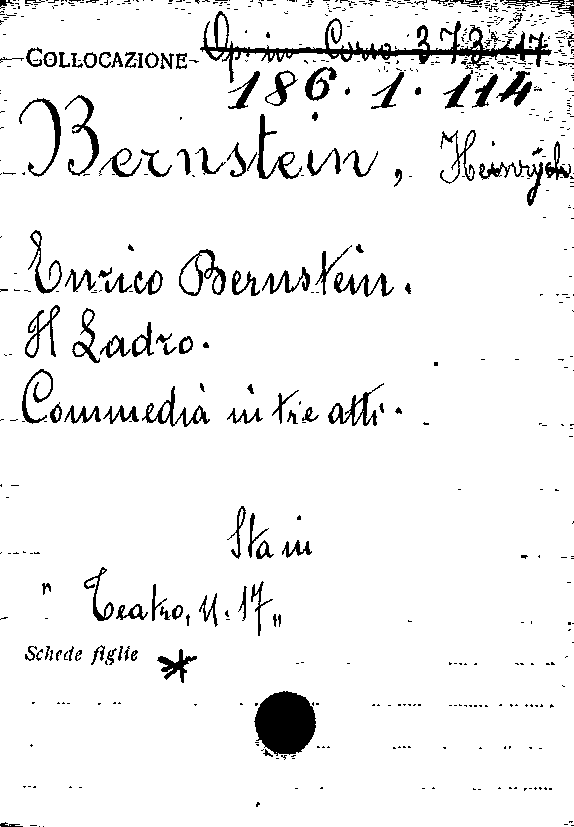 COLLOCAZIONE Op. in Corso 373-17
186. 1. 114
Bernstein, Heinrich
Enrico Bernstein.
Il Ladro.
Commedia in tre atti.
Sta in
" Teatro, N. 17 "
Schede figlie *